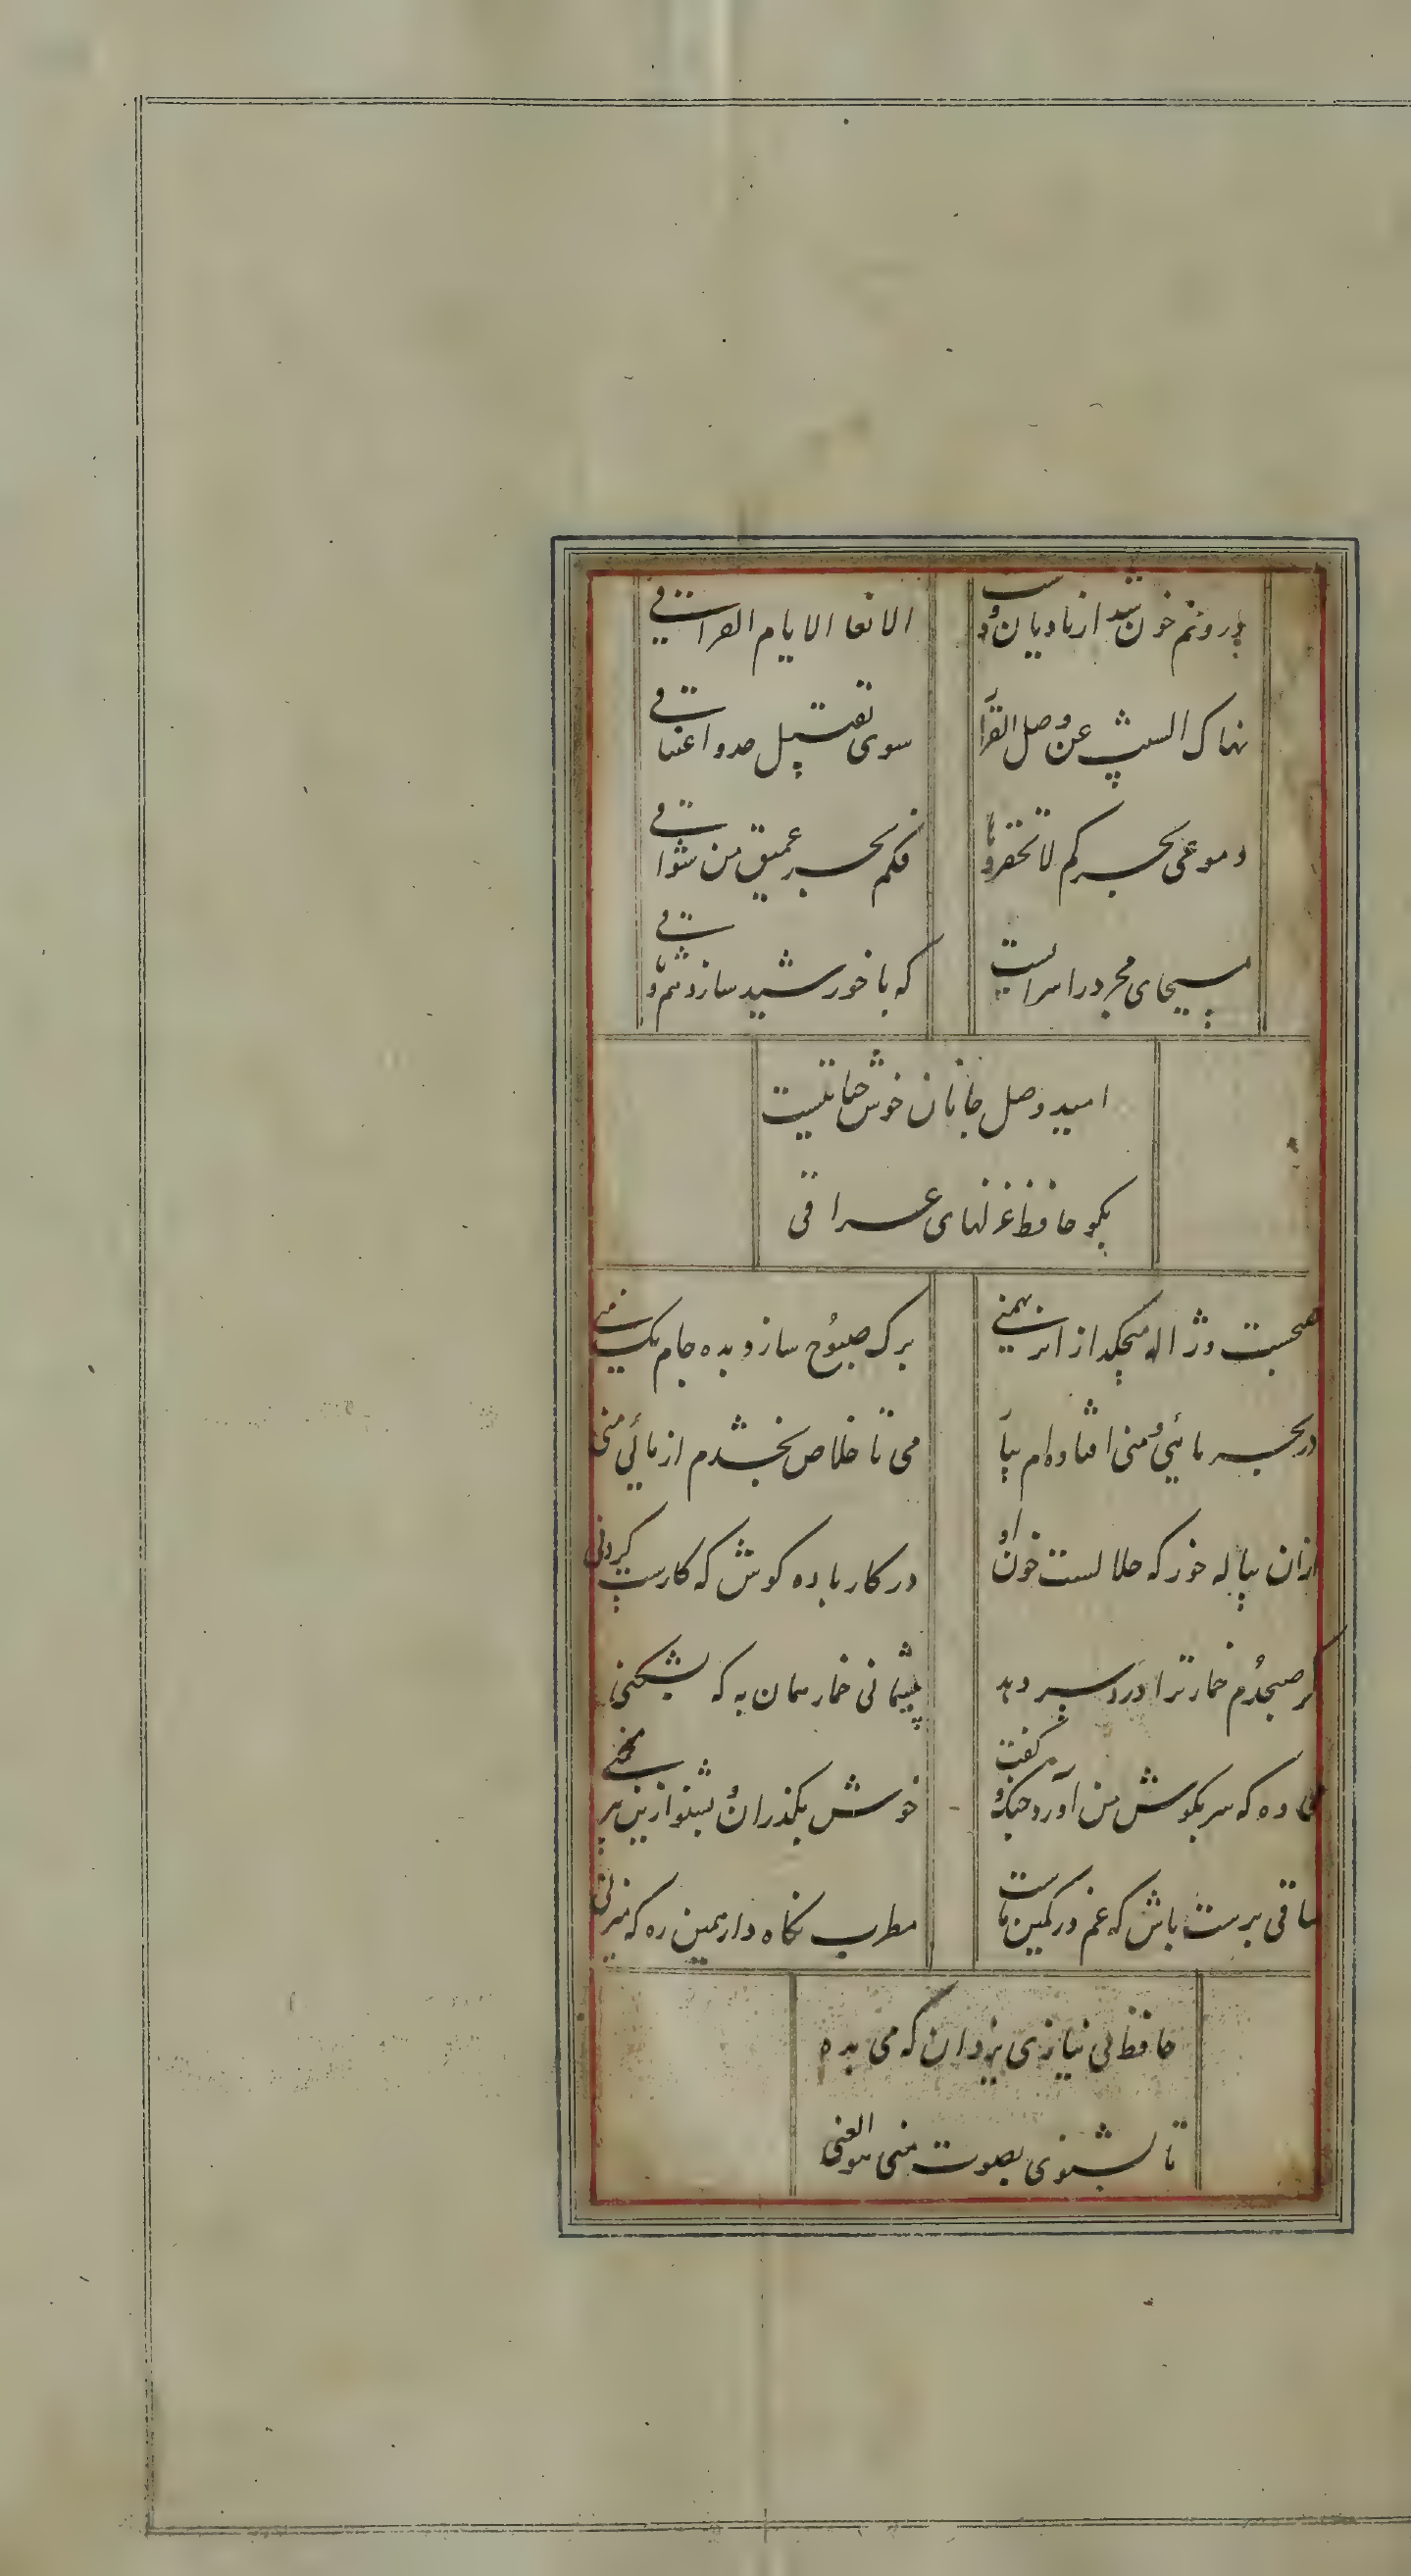 درونم خون شد از نادیدن دوست الا تعسا لایام الفراقی
نهاک الشیب عن وصل العذارا سوی تقبیل خد و اعتناقی
دموعی بحرکم لا تحقروها فکم بحر عمیق من سواقی
مسیحای مجرد را سزاست که با خورشید سازد هم وثاقی
امید وصل جانان خوش حیاتیست
بگو حافظ غزلهای عراقی
صبحست و ژاله میچکد از ابر بهمنی برک صبوح ساز و بده جام یک منی
در بحر مائی و منی افتاده ام بیا می تا خلاص بخشدم از مائی و منی
ازان پیاله خور که حلالست خون او در کار باده کوش که کاریست کردنی
کر صبحدم خمار ترا درد سر دهد پیشانی خمار همان به که بشکنی
می ده که سر بکوش من آورد چنک و گفت خوش بگذران و بشنو ازین پیر منحنی
ساقی بدست باش که غم در کمین ماست مطرب نگاه دار همین ره که میزنی
حافظ بی نیازی یزدان که می بده
تا بشنوی بصوت مغنی هو الغنی